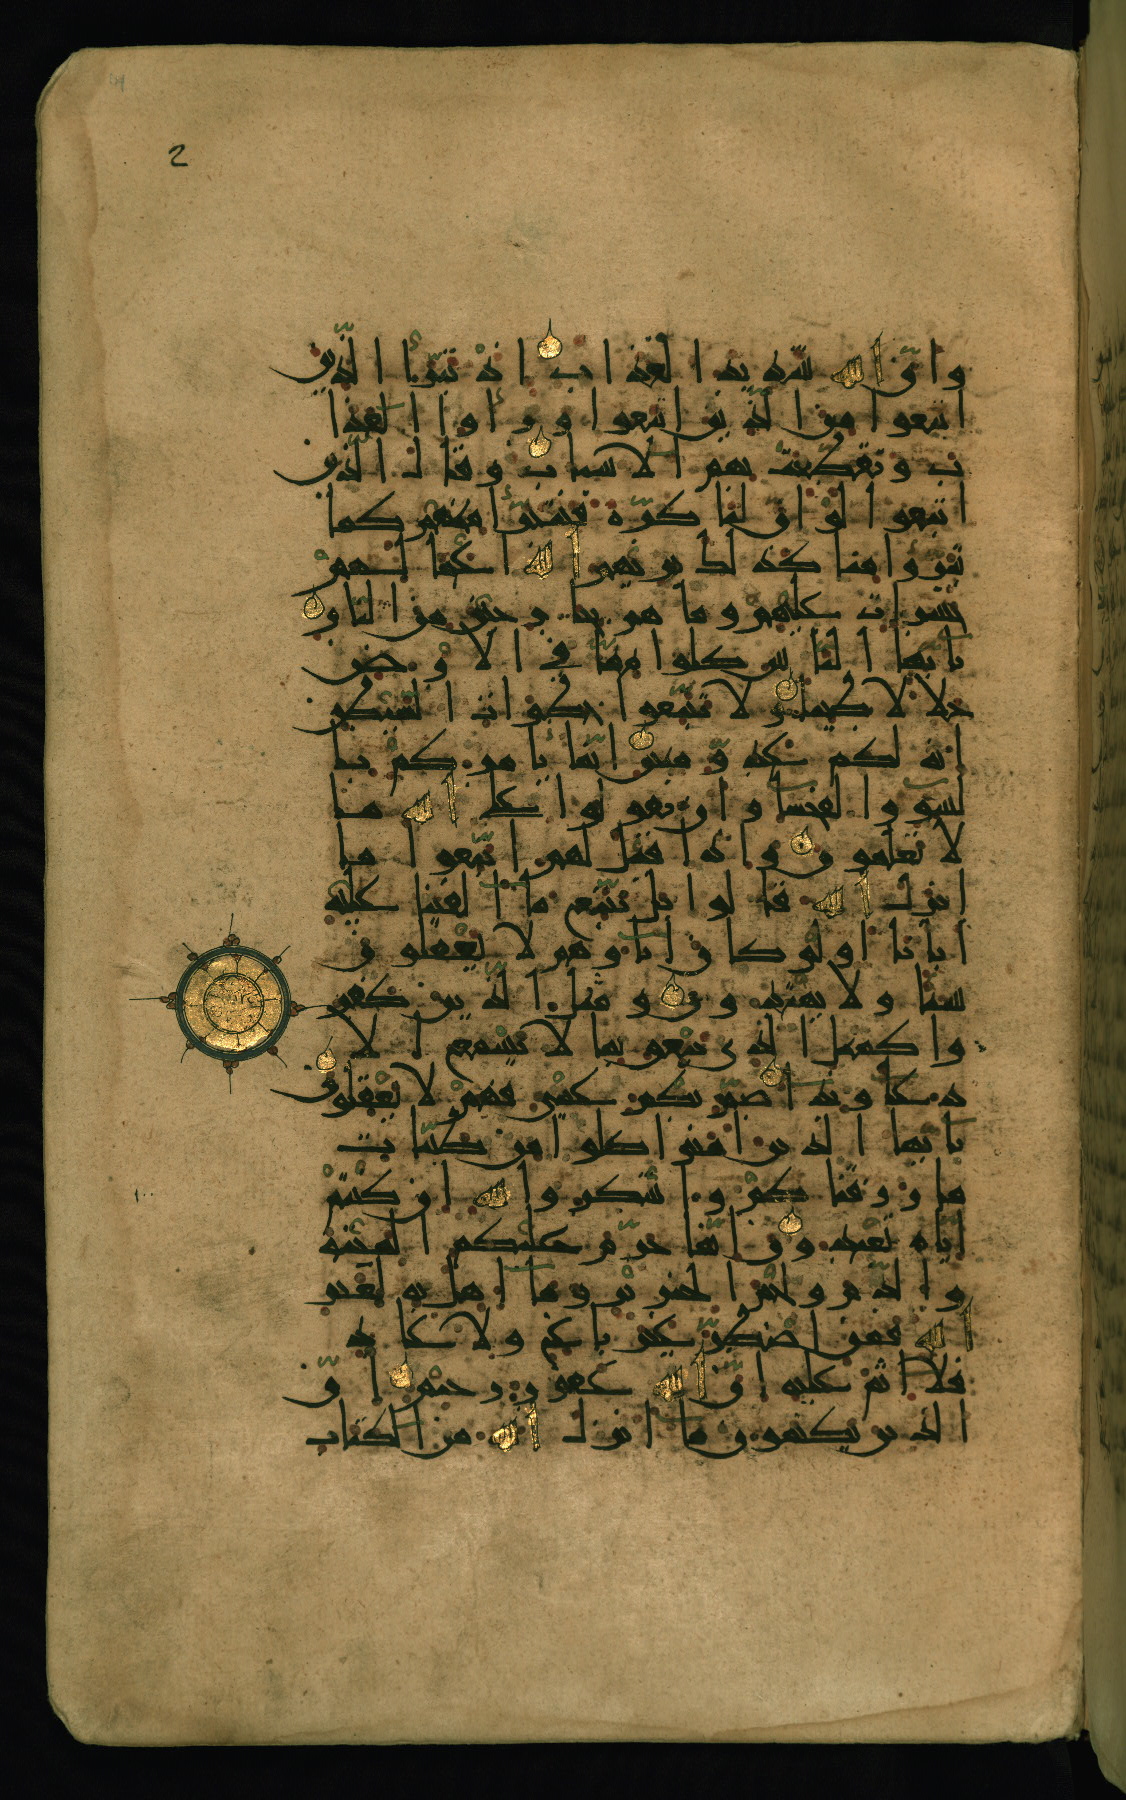 2
وان الله شديد العذاب اذ تبرأ الذين
اتبعوا من الذين اتبعوا وراوا العذا
ب وتقطعت بهم الاسباب وقال الذين
اتبعوا لو ان لنا كرة فنتبرأ منهم كما
تبرءوا منا كذلك يريهم الله اعمالهم
حسرات عليهم وما هم بخارجين من النار
يايها الناس كلوا مما في الارض
حللا طيبا ولا تتبعوا خطوات الشيطن
انه لكم عدو مبين انما يامركم با
لسوء والفحشاء وان تقولوا على الله ما
لا تعلمون واذا قيل لهم اتبعوا ما
انزل الله قالوا بل نتبع ما الفينا عليه
اباءنا اولو كان اباوهم لا يعقلون
شيئا ولا يهتدون ومثل الذين كفر
وا كمثل الذي ينعق بما لا يسمع الا
دعاء ونداء صم بكم عمي فهم لا يعقلون
يايها الذين امنوا كلوا من طيبات
ما رزقناكم واشكروا لله ان كنتم
اياه تعبدون انما حرم عليكم الميتة
والدم ولحم الخنزير وما اهل به لغير
الله فمن اضطر غير باغ ولا عاد
فلا اثم عليه ان الله غفور رحيم ان
الذين يكتمون ما انزل الله من الكتاب